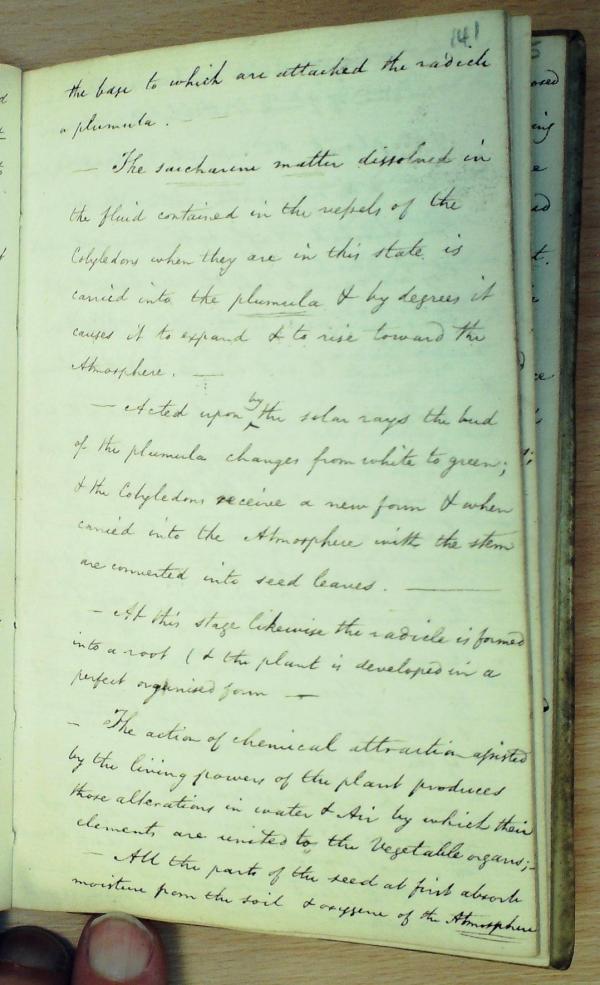 141
the base to which are attached the radicle
a plumula. —
— The saccharine matter dissolved in
the fluid contained in the vessels of the
Cotyledons when they are in this state is
carried into the plumula & by degrees it
causes it to expand & to rise toward the
Atmosphere. —
— Acted upon by the solar rays the bud
of the plumula changes from white to green;
& the Cotyledons receive a new form & when
carried into the Atmosphere with the stem
are converted into seed leaves. —
— At this stage likewise the radicle is formed
into a root ( & the plant is developed in a
perfect organised form —
— The action of chemical attraction assisted
by the living powers of the plant produces
those alterations in water & Air by which their
elements are united to the Vegetable organs; -
— All the parts of the seed at first absorb
moisture from the soil & oxygene of the Atmosphere